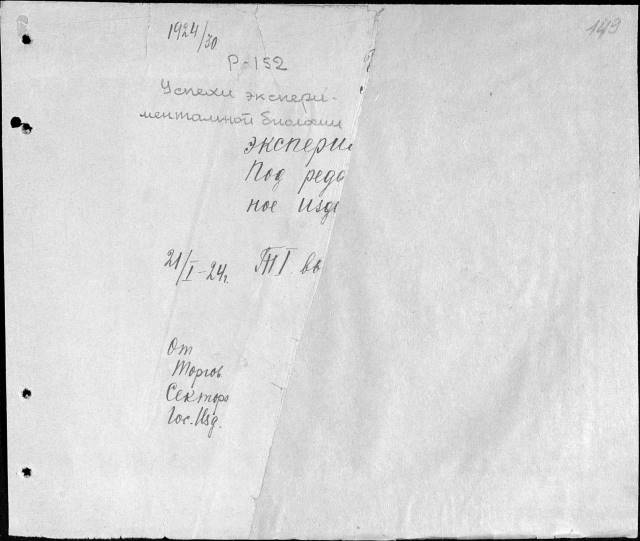 1924/30
149
Р-152
Успехи экспери-
ментальной биологии
экспери
Под реда
ное изд
21/I-24г. Т I вы
От
Торгов.
Сектора
Гос. Изд.